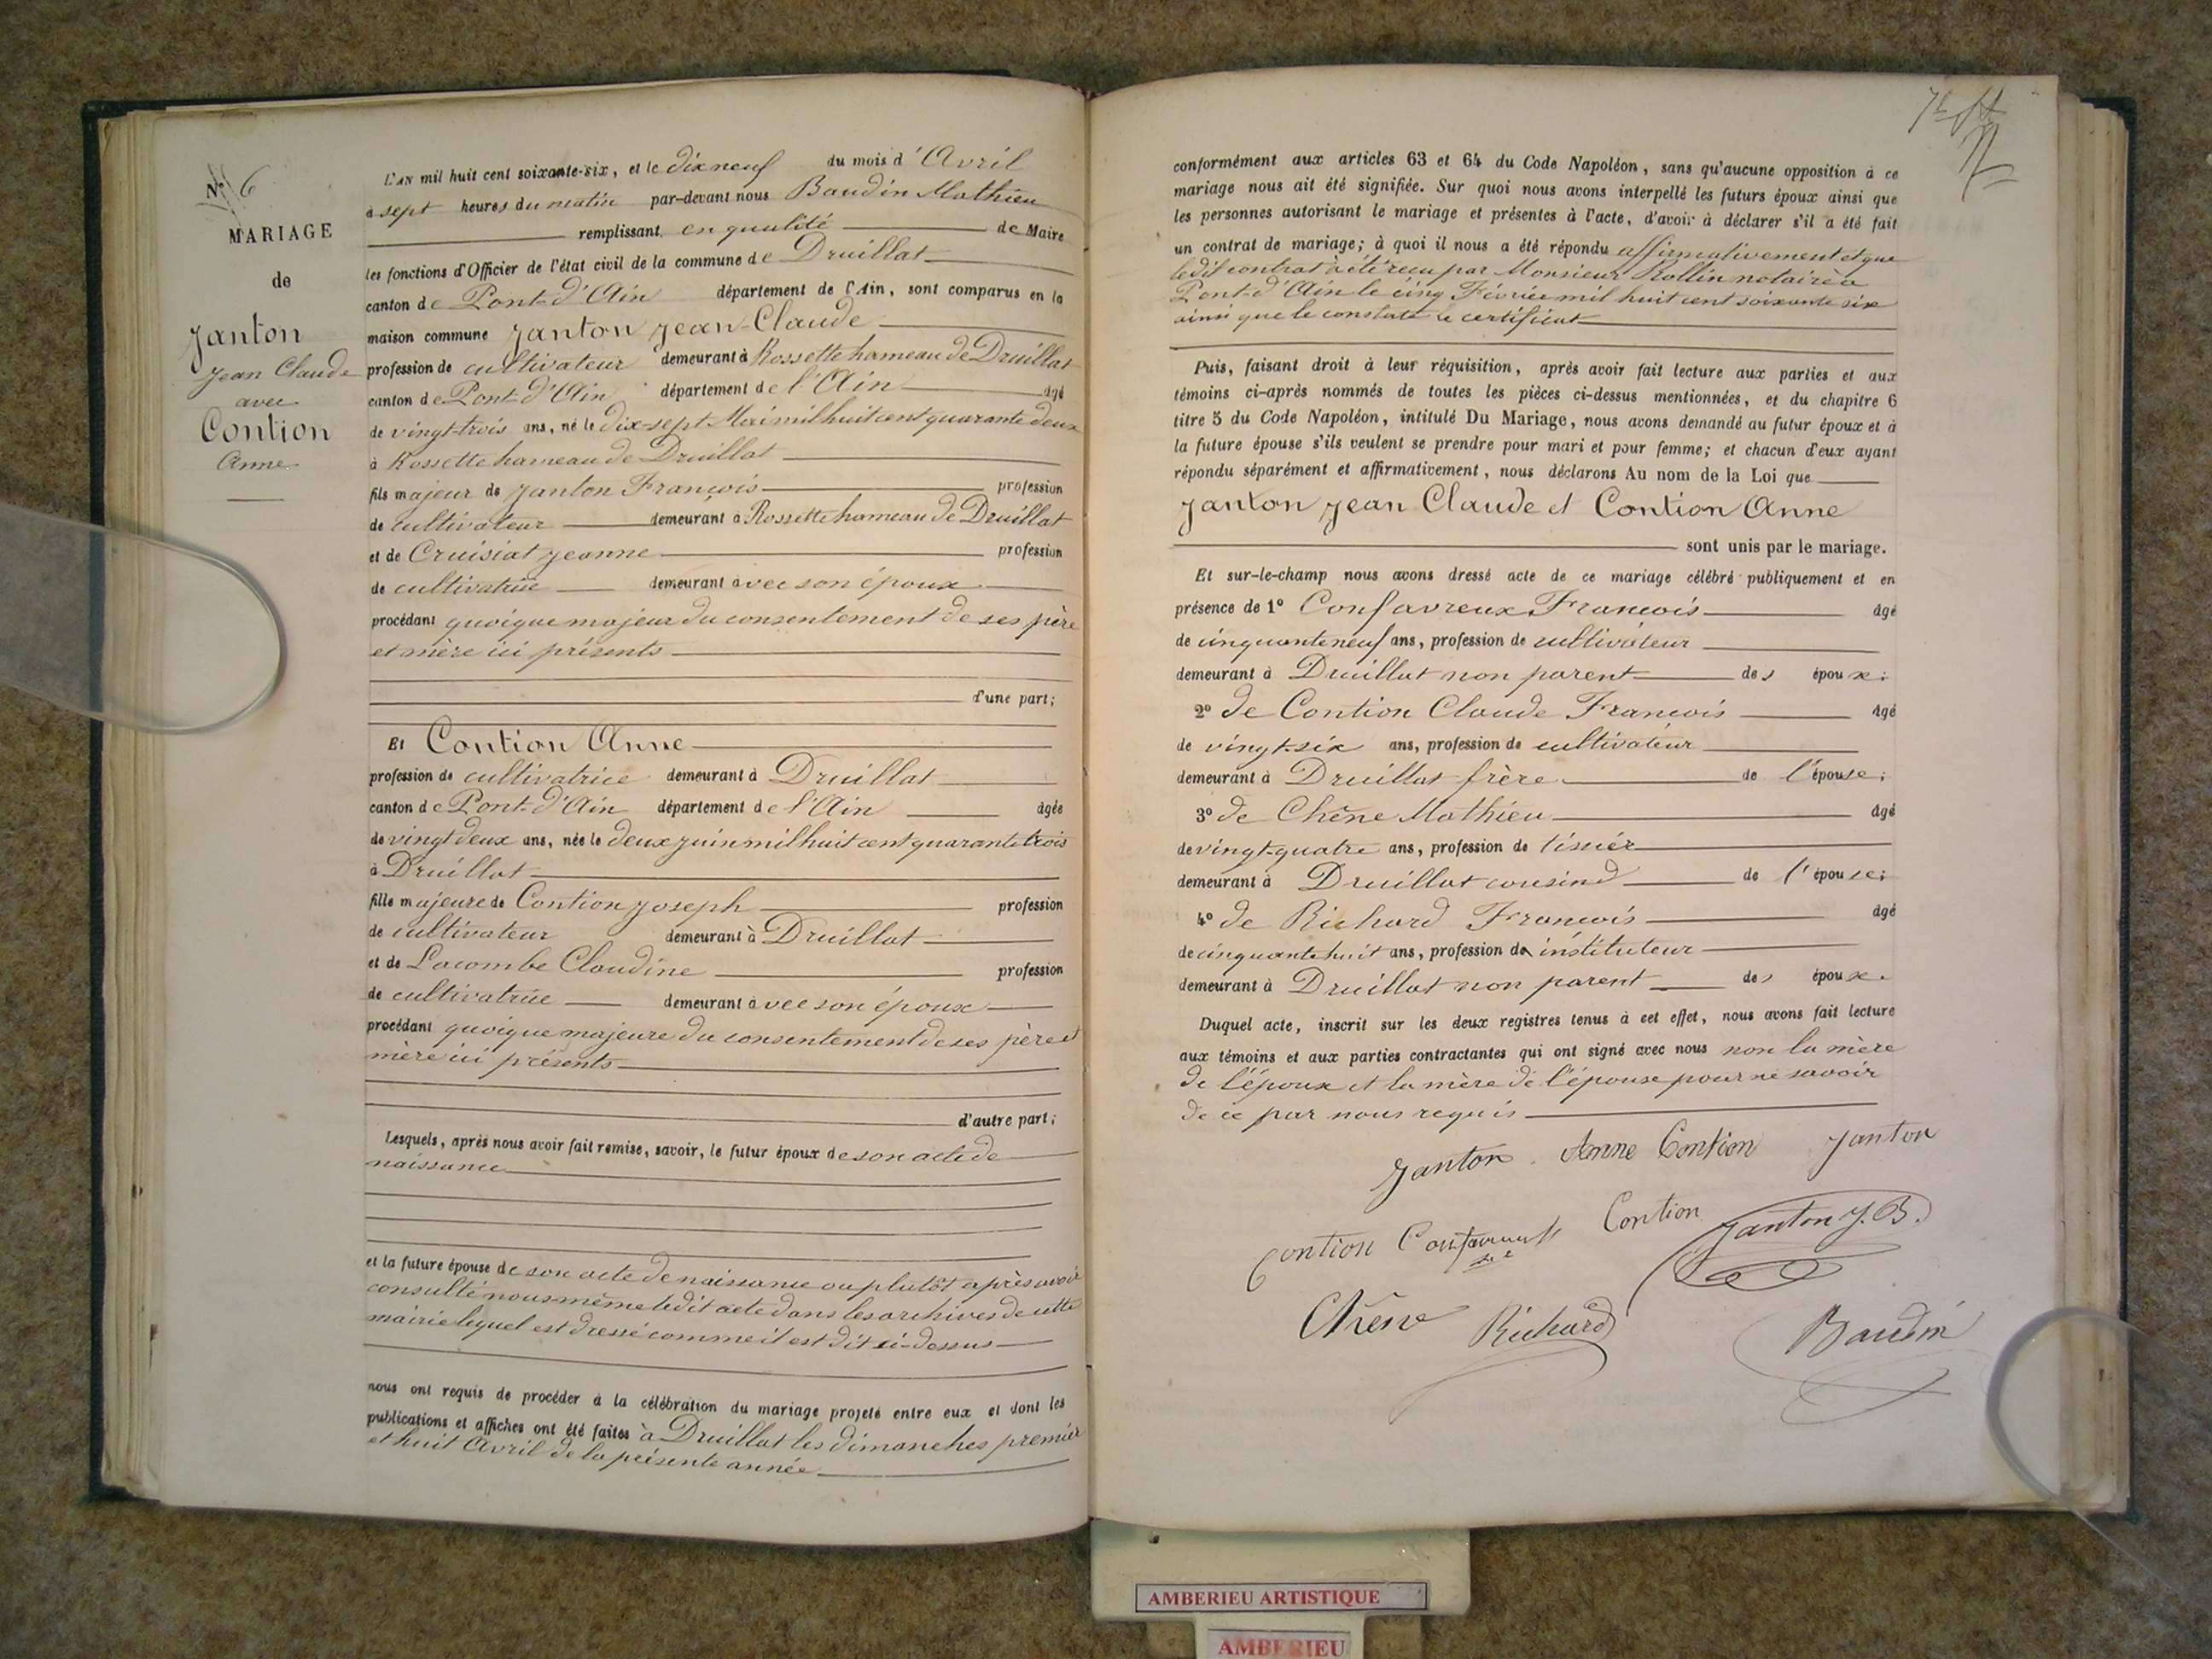 N.° 6
MARIAGE
de
Janton
Jean Claude
avec
Contion
Anne
L'AN mil huit cent soixante-six, et le dix neuf du mois d'Avril
à sept heures du matin par-devant nous Baudin Mathieu
remplissant en qualité de Maire
les fonctions d'Officier de l'état civil de la commune de Druillat
canton de Pont-d'Ain département de l'Ain, sont comparus en la
maison commune Janton Jean-Claude
profession de cultivateur demeurant à Rossette hameau de Druillat
canton de Pont-d'Ain département de l'Ain âgé
de vingt-trois ans, né le dix-sept Mai mil huit cent quarante deux
à Rossette hameau de Druillat
fils majeur de Janton François profession
de cultivateur demeurant à Rossette hameau de Druillat
et de Cruisiat Jeanne profession
de cultivatrice demeurant avec son époux
procédant quoique majeur du consentement de ses père
et mère ici présents
d'une part;
Et Contion Anne
profession de cultivatrice demeurant à Druillat
canton de Pont-d'Ain département de l'Ain âgée
de vingt deux ans, née le deux juin mil huit cent quarante trois
à Druillat
fille majeure de Contion Joseph profession
de cultivateur demeurant à Druillat
et de Lacombe Claudine profession
de cultivatrice demeurant avec son époux
procédant quoique majeure du consentement de ses père et
mère ici présents
d'autre part;
Lesquels, après nous avoir fait remise, savoir, le futur époux de son acte de
naissance
et la future épouse de son acte de naissance ou plutôt après avoir
consulté nous même ledit acte dans les archives de cette
mairie lequel est dressé comme il est dit ci-dessus
nous ont requis de procéder à la célébration du mariage projeté entre eux et dont les
publications et affiches ont été faites à Druillat les dimanches premier
et huit Avril de la présente année
conformément aux articles 63 et 64 du Code Napoléon, sans qu'aucune opposition à ce
mariage nous ait été signifiée. Sur quoi nous avons interpellé les futurs époux ainsi que
les personnes autorisant le mariage et présentes à l'acte, d'avoir à déclarer s'il a été fait
un contrat de mariage; à quoi il nous a été répondu affirmativement et que
ledit contrat à été reçu par Monsieur Rollin notaire à
Pont-d'Ain le cinq Février mil huit cent soixante six
ainsi que le constate le certificat
Puis, faisant droit à leur réquisition, après avoir fait lecture aux parties et aux
témoins ci-après nommés de toutes les pièces ci-dessus mentionnées, et du chapitre 6
titre 5 du Code Napoléon, intitulé Du Mariage, nous avons demandé au futur époux et à
la future épouse s'ils veulent se prendre pour mari et pour femme; et chacun d'eux ayant
répondu séparément et affirmativement, nous déclarons Au nom de la Loi que
Janton Jean Claude et Contion Anne
sont unis par le mariage.
Et sur-le-champ nous avons dressé acte de ce mariage célébré publiquement et en
présence de 1° Confavreux François âgé
de cinquante neuf ans, profession de cultivateur
demeurant à Druillat non parent des époux;
2° de Contion Claude François âgé
de vingt-six ans, profession de cultivateur
demeurant à Druillat frère de l'épouse;
3° de Chêne Mathieu âgé
de vingt-quatre ans, profession de tissier
demeurant à Druillat cousin de l'épouse;
4° de Richard François âgé
de cinquante huit ans, profession de instituteur
demeurant à Druillat non parent des époux.
Duquel acte, inscrit sur les deux registres tenus à cet effet, nous avons fait lecture
aux témoins et aux parties contractantes qui ont signé avec nous non la mère
de l'époux et la mère de l'épouse pour ne savoir
de ce par nous requis
Janton Anne Contion Janton
Contion Contion Janton J. B.
Chêne Richard Baudin
AMBERIEU ARTISTIQUE
AMBERIEU